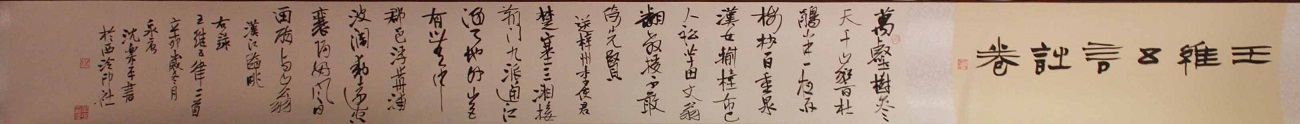 王維五言詩卷
萬壑樹參
天千山響杜
鵑山中一夜雨
樹杪百重泉
漢女輸橦布巴
人訟芋田文翁
翻教授不敢
倚先賢
送梓州李使君
楚塞三湘接
荊門九派通江
流天地外山色
有無中
郡邑浮前浦
波瀾動遠空
襄陽好風日
留醉與山翁
漢江臨眺
右錄
王維五律二首
辛卯歲月
沈樂平書
於西泠印社